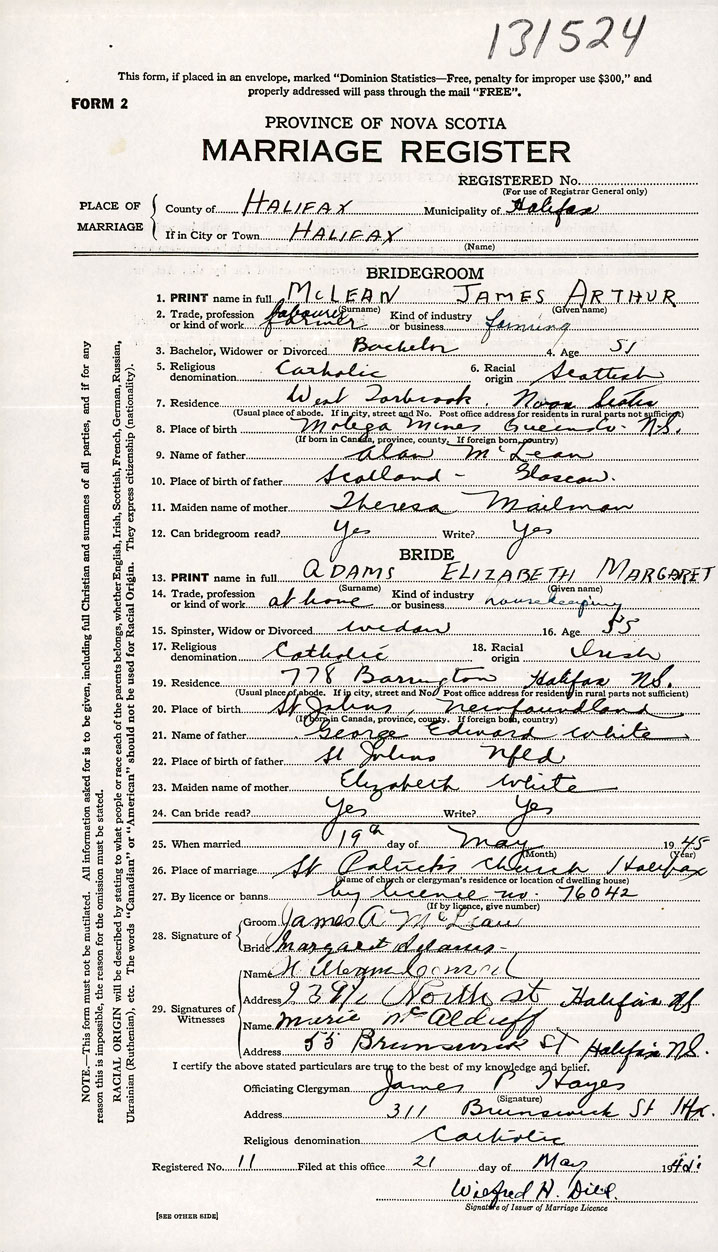 131524
This form, if placed in an envelope, marked "Dominion Statistics—Free, penalty for improper use $300," and
properly addressed will pass through the mail "FREE".
FORM 2
PROVINCE OF NOVA SCOTIA
MARRIAGE REGISTER
REGISTERED No.
(For use of Registrar General only)
PLACE OF MARRIAGE
County of HALIFAX Municipality of Halifax
If in City or Town HALIFAX
(Name)
BRIDEGROOM
1. PRINT name in full McLEAN JAMES ARTHUR
(Surname) (Given name)
2. Trade, profession or kind of work labourer farmer Kind of industry or business farming
3. Bachelor, Widower or Divorced Bachelor 4. Age 51
5. Religious denomination Catholic 6. Racial origin Scottish
7. Residence West Torbrook, Nova Scotia
(Usual place of abode. If in city, street and No. Post office address for residents in rural parts not sufficient)
8. Place of birth Molega Mines Queens N.S.
(If born in Canada, province, county. If foreign born, country)
9. Name of father Alan McLean
10. Place of birth of father Scotland - Glascow.
11. Maiden name of mother Theresa Mailman
12. Can bridegroom read? Yes Write? Yes
BRIDE
13. PRINT name in full ADAMS ELIZABETH MARGARET
(Surname) (Given name)
14. Trade, profession or kind of work at home Kind of industry or business housekeeping
15. Spinster, Widow or Divorced widow 16. Age 55
17. Religious denomination Catholic 18. Racial origin Irish
19. Residence 778 Barrington Halifax N.S.
(Usual place of abode. If in city, street and No. Post office address for residents in rural parts not sufficient)
20. Place of birth St Johns, Newfoundland
(If born in Canada, province, county. If foreign born, country)
21. Name of father George Edward White
22. Place of birth of father St Johns Nfld
23. Maiden name of mother Elizabeth White
24. Can bride read? Yes Write? Yes
25. When married 19th day of May 1945
(Month) (Year)
26. Place of marriage St Patrick's Church Halifax
(Name of church or clergyman's residence or location of dwelling house)
27. By licence or banns by licence no. 76042
(If by licence, give number)
28. Signature of
Groom James A McLean
Bride Margaret Adams
29. Signatures of Witnesses
Name
Address North st Halifax NS
Name Marie
Address 55 Brunswick ST Halifax N.S.
I certify the above stated particulars are true to the best of my knowledge and belief.
Officiating Clergyman James P Hayes
(Signature)
Address 311 Brunswick St Hfx.
Religious denomination Catholic
Registered No. 11 Filed at this office 21 day of May 19
Wilfred H. Dill.
Signature of Issuer of Marriage Licence
[SEE OTHER SIDE]
NOTE.—This form must not be mutilated. All information asked for is to be given, including full Christian and surnames of all parties, and if for any
reason this is impossible, the reason for the omission must be stated.
RACIAL ORIGIN will be described by stating to what people or race each of the parents belongs, whether English, Irish, Scottish, French, German, Russian,
Ukrainian (Ruthenian), etc. The words "Canadian" or "American" should not be used for Racial Origin. They express citizenship (nationality).